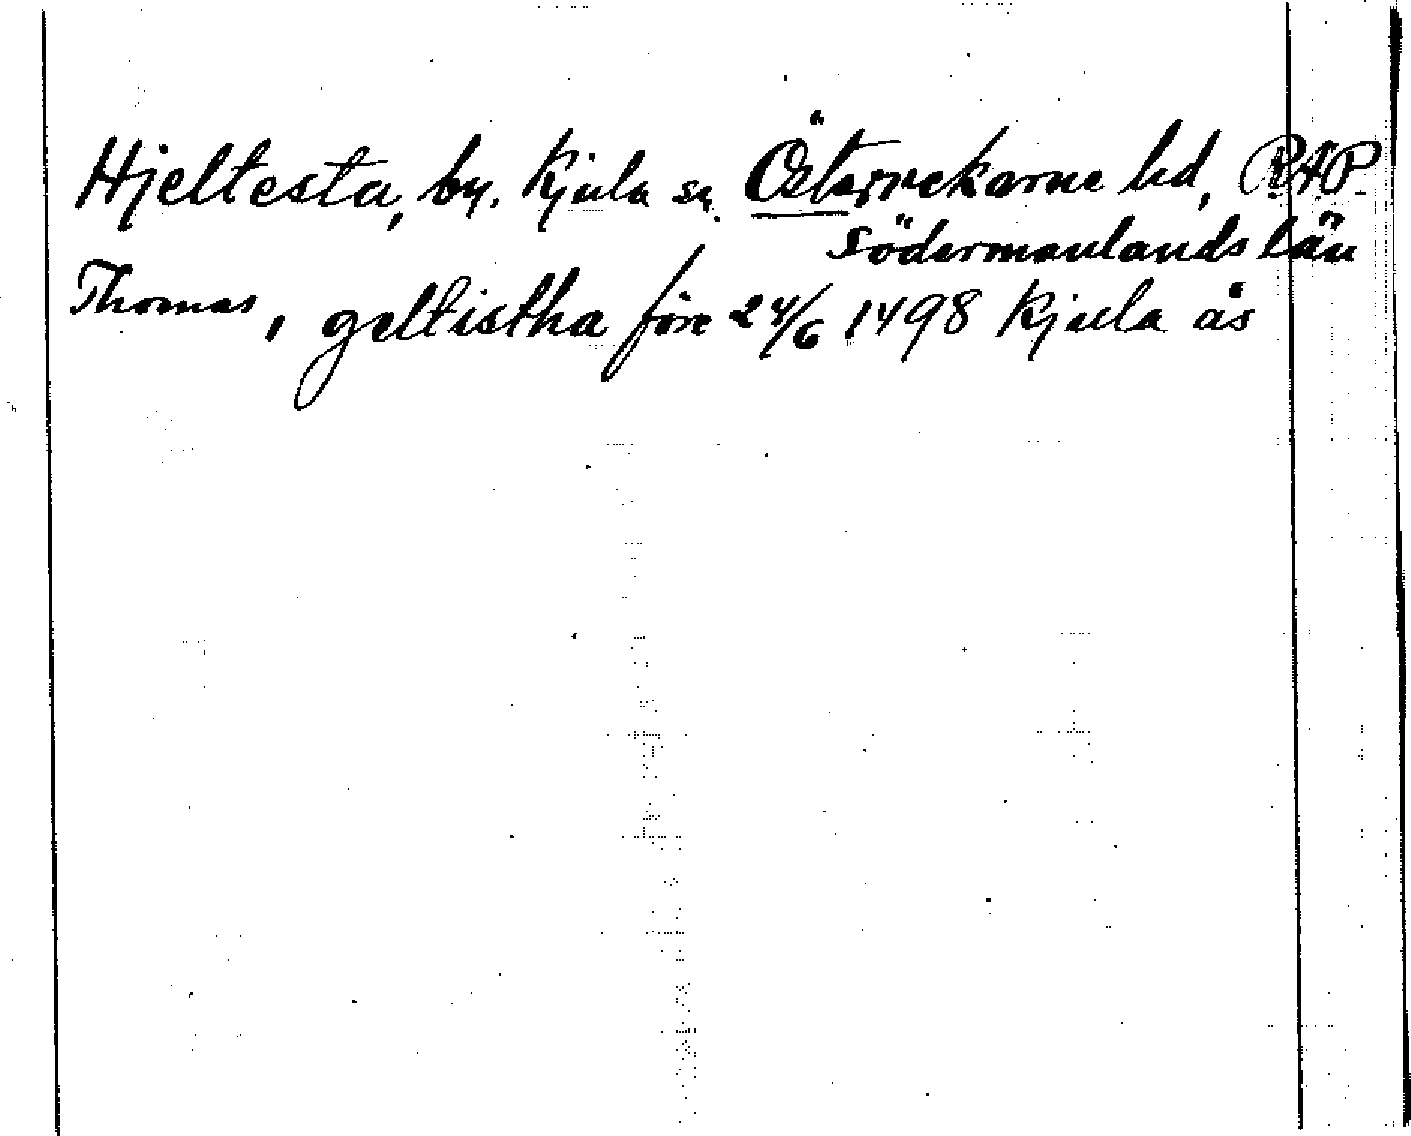 Hjeltesta, by. Kjula sn. Österrekarne hd, RAP.
Södermanlands län
Thomas, geltistha före 24/6 1498 Kjula ås